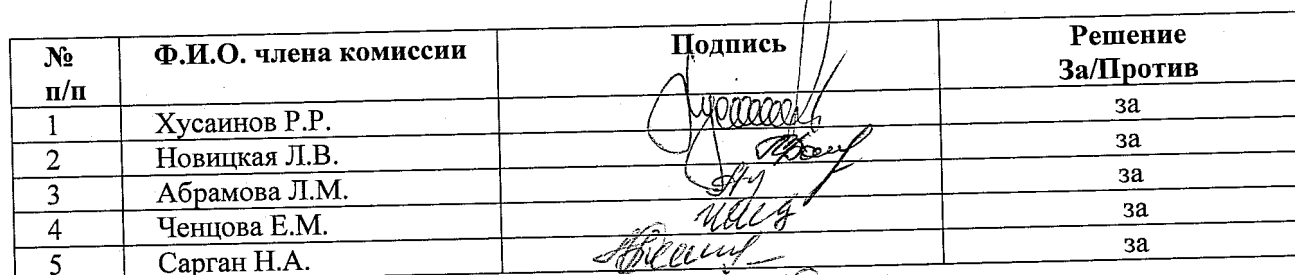 № Ф.И.О. члена комиссии Подпись Решение
п/п За/Против
1 Хусаинов Р.Р. за
2 Новицкая Л.В. за
3 Абрамова Л.М. за
4 Ченцова Е.М. за
5 Сарган Н.А. за